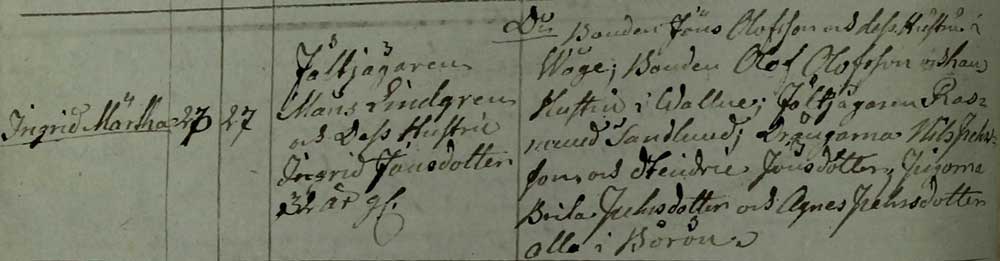 Ingrid Märtha 27 27
Fältjägaren
Måns Lindgren
och Dess Hustru
Ingrid Jönsdotter
32 år gl.
Du Bonden Jöns Olofsson och dess Hustru i
Wäge; Bonden Olof Olofsson och han
Hustru i Wallne; Fältjägaren Ras-
mund Sandlund; Drängarna Nils Pehr-
son och Hendric Jönsdotter, Pigorna
Brita Pehrsdotter och Agnes Pehrsdotter
alla i Börön.